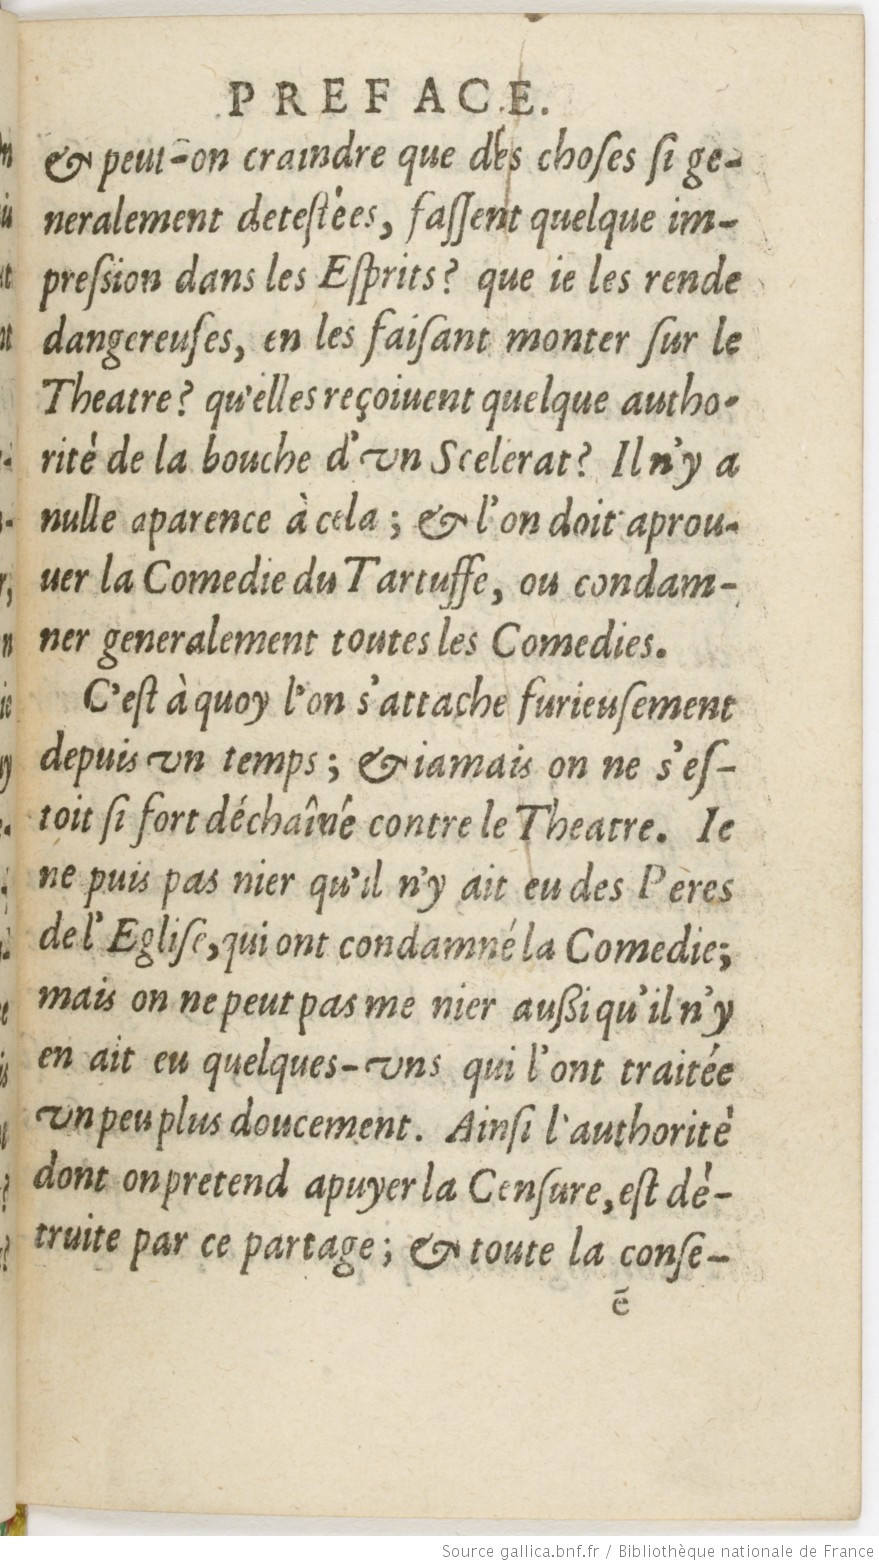 PREFACE.
& peut-on craindre que des choſes ſi ge-
neralement deteſtées, faſſent quelque im-
preſsion dans les Eſprits? que ie les rende
dangereuſes, en les faiſant monter ſur le
Theatre? qu'elles reçoiuent quelque autho-
rité de la bouche d'vn Scelerat? Il n'y a
nulle aparence à cela; & l'on doit aprou-
uer la Comedie du Tartuffe, ou condam-
ner generalement toutes les Comedies.
C'eſt à quoy l'on s'attache furieuſement
depuis vn temps; & iamais on ne s'eſ-
toit ſi fort déchaîné contre le Theatre. Ie
ne puis pas nier qu'il n'y ait eu des Peres
de l'Egliſe, qui ont condamné la Comedie;
mais on ne peut pas me nier auſsi qu'il n'y
en ait eu quelques-vns qui l'ont traitée
vn peu plus doucement. Ainſi l'authorité
dont on pretend apuyer la Cenſure, eſt dé-
truite par ce partage; & toute la conſe-
ē
Source gallica.bnf.fr / Bibliothèque nationale de France